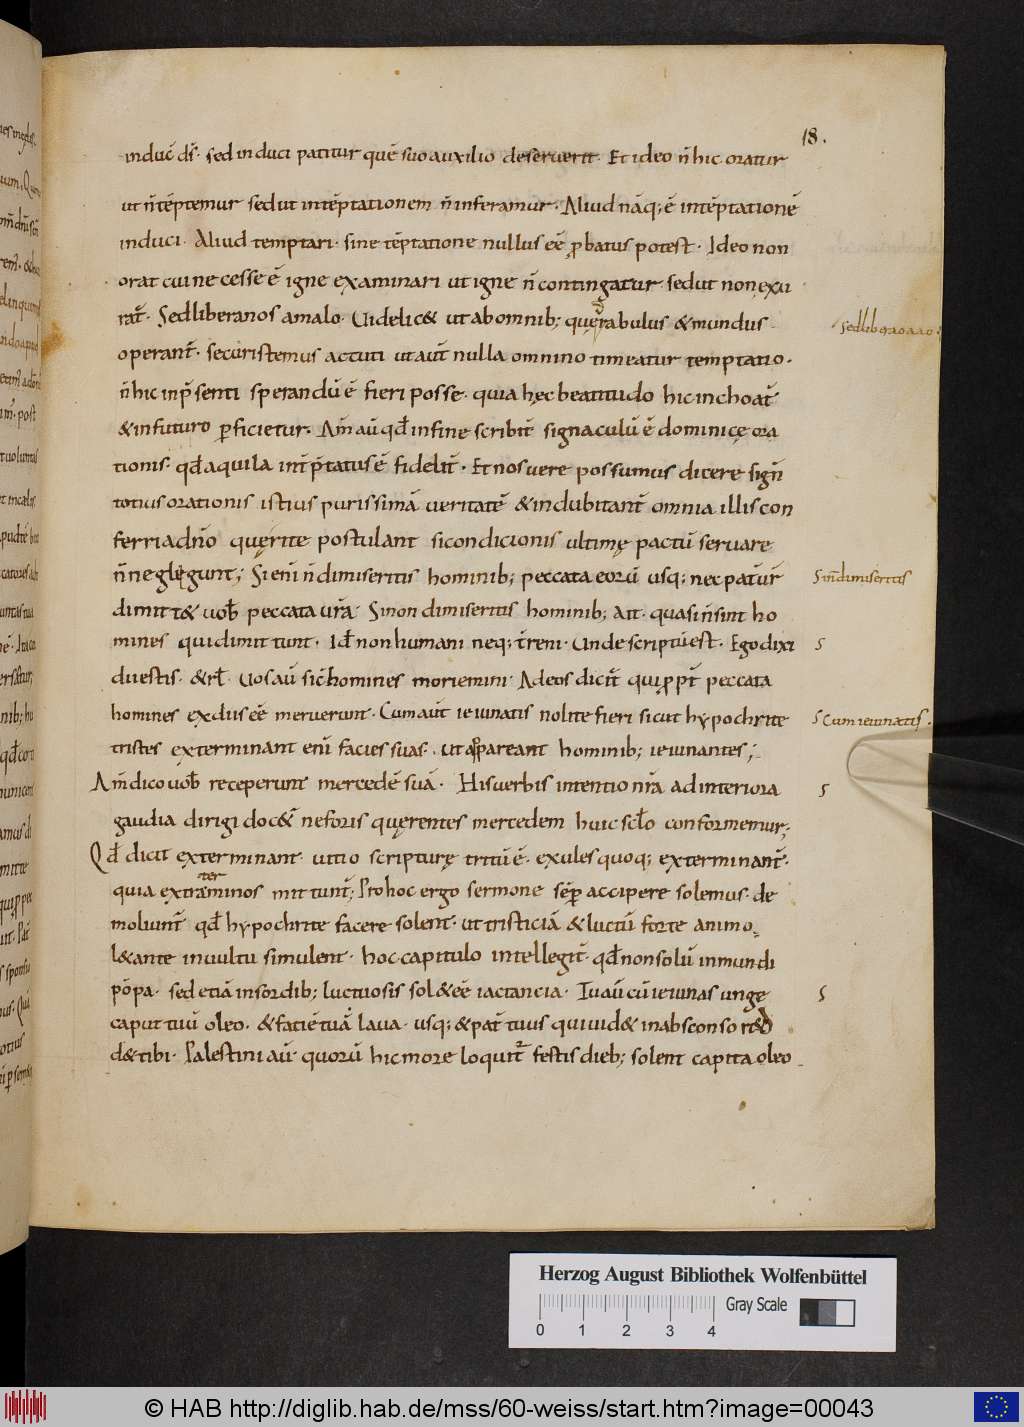 18.
induc̄ dſ̄. sed induci patitur quē suo auxilio deseruerit. Et ideo n̄ hic oratur
ut n̄ tēptemur sed ut intēptationem n̄ inferamur. Aliud nāq; ē intēptationē
induci. Aliud temptari. sine tēptatione nullus eē ꝓbatus potest. Ideo non
orat cui necesse ē igne examinari ut igne n̄ contingatur sed ut non exu
rat̄. Sed libera nos a malo. Uidelic& ut ab omnib; quę
& mundus
operant̄. securi stemus ac tuti ut aut̄ nulla omnino timeatur temptatio.
n̄ hic in p̄senti sperandū ē fieri posse. quia hęc beatitudo hic inchoat̄
& in futuro ꝑficietur. Am̄ aū qd̄ in fine scribit̄ signaculū ē dominicę ora
tionis. qd̄ aquila int̄p̄tatus ē fidelit̄. Et nos uere possumus dicere sign̄
totius orationis istius purissimā ueritatē & indubitant̄ omnia illis con
ferri a dn̄o quęrite postulant si condicionis ultimę pactū seruare
n̄ neglegunt; Si enī n̄ dimiseritis hominib; peccata eorū usq; nec pat̄ ur̄
dimitt& uob̄ peccata ur̄a. Si non dimiseritis hominib; ait. quasi n̄ sint ho
mines qui dimittunt. Id̄ non humani neq; t̄reni. Unde scriptū est. Ego dixi
dii estis. & rl̄. Uos aū sic̄ homines moriemini. Ad eos dicit̄ qui ꝓpt̄ peccata
homines ex diis eē meruerunt. Cum aut̄ ieiunatis nolite fieri sicut hypochrite
tristes exterminant enī facies suas. ut appareant hominib; ieiunantes;
Am̄ dico uob̄ receperunt mercedē suā. His uerbis intentio nr̄a ad interiora
gaudia dirigi doc& ne foris quęrentes mercedem huic sc̄lo conformemur;
Qd̄ dicit exterminant. uitio scripturę tritū ē. exules quoq; exterminant̄.
ter
quia extra minos mittunt̄; Pro hoc ergo sermone sēp̄ accipere solemus. de
moliunt̄ qd̄ hypochrite facere solent. ut tristiciā & luctū forte animo
l&ante in uultu simulent. hoc capitulo intellegit̄. qd̄ non solū in mundi
pōpa. sed etiā in sordib; luctuosis sol& eē iactancia. Tu aū cū ieiunas unge
caput tuū oleo. & faciē tuā laua. usq; & pat̄ tuus qui uid& in absconso redd
d& tibi. Palestini aū quorū hic more loquit̄ festis dieb; solent capita oleo
sed libera
Si n̄ dimiseritis
S
S Cum ieiunatis.
S
S
Herzog August Bibliothek Wolfenbüttel
0 1 2 3 4
Gray Scale
© HAB http://diglib.hab.de/mss/60-weiss/start.htm?image=00043